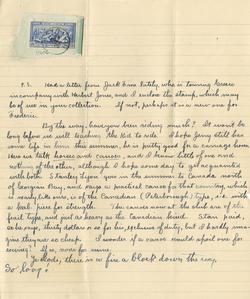 P.S. Had a letter from Jack Enos lately, who is touring Greece
in company with Herbert Jones, and I enclose the stamp, which may
be of use in your collection. If not, perhaps it is a new one for
Frederic.
By the way, have you been riding much? It won't be
long before we will teaching the kid to ride. I hope Jerry still has
some life in him this summer, he is pretty good for a carriage horse.
Here we talk horses and canoes, and I know little of one and
nothing of the other, although I hope some day to get acquainted
with both. Stanley goes in the summer to Canada north
of Georgian Bay, and says a practical canoe for that country, which
is really like ours, is of the Canadian (Peterborough) type, i.e. with a
keel piece for strength. The canoes now at the club are of the
frail type, and just as heavy as the Canadian kind. Stan paid,
he says, thirty dollars or so for his, exclusive of duty, but I hardly ima-
gine they are so cheap. I wonder if a canoe would repay one for
having? If so, none for mine.
Ye Gods, there is a fire a block down the way.
So long!